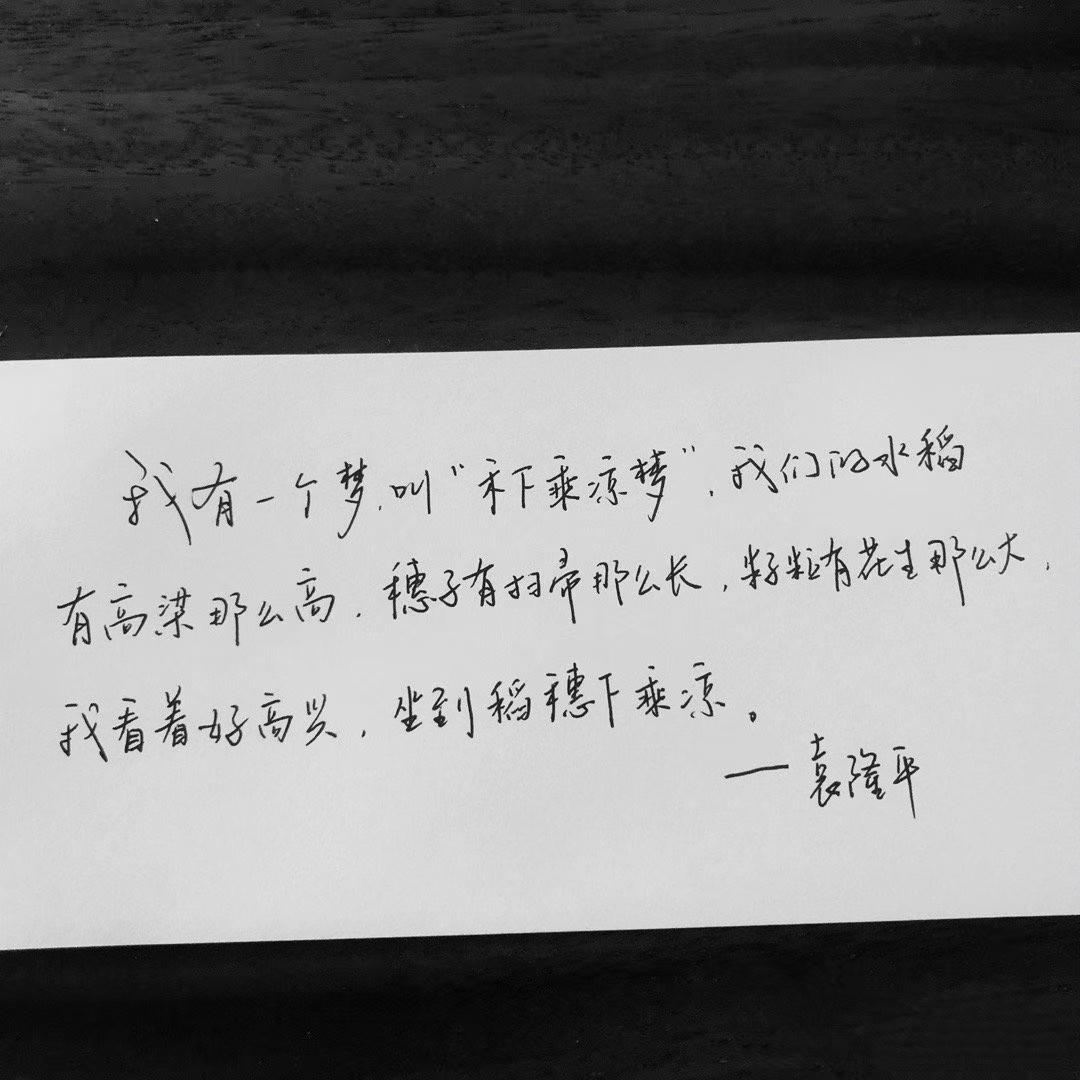 我有一个梦,叫“禾下乘凉梦”,我们的水稻
有高梁那么高,穗子有扫帚那么长,籽粒有花生那么大,
我看着好高兴,坐到稻穗下乘凉。
——袁隆平